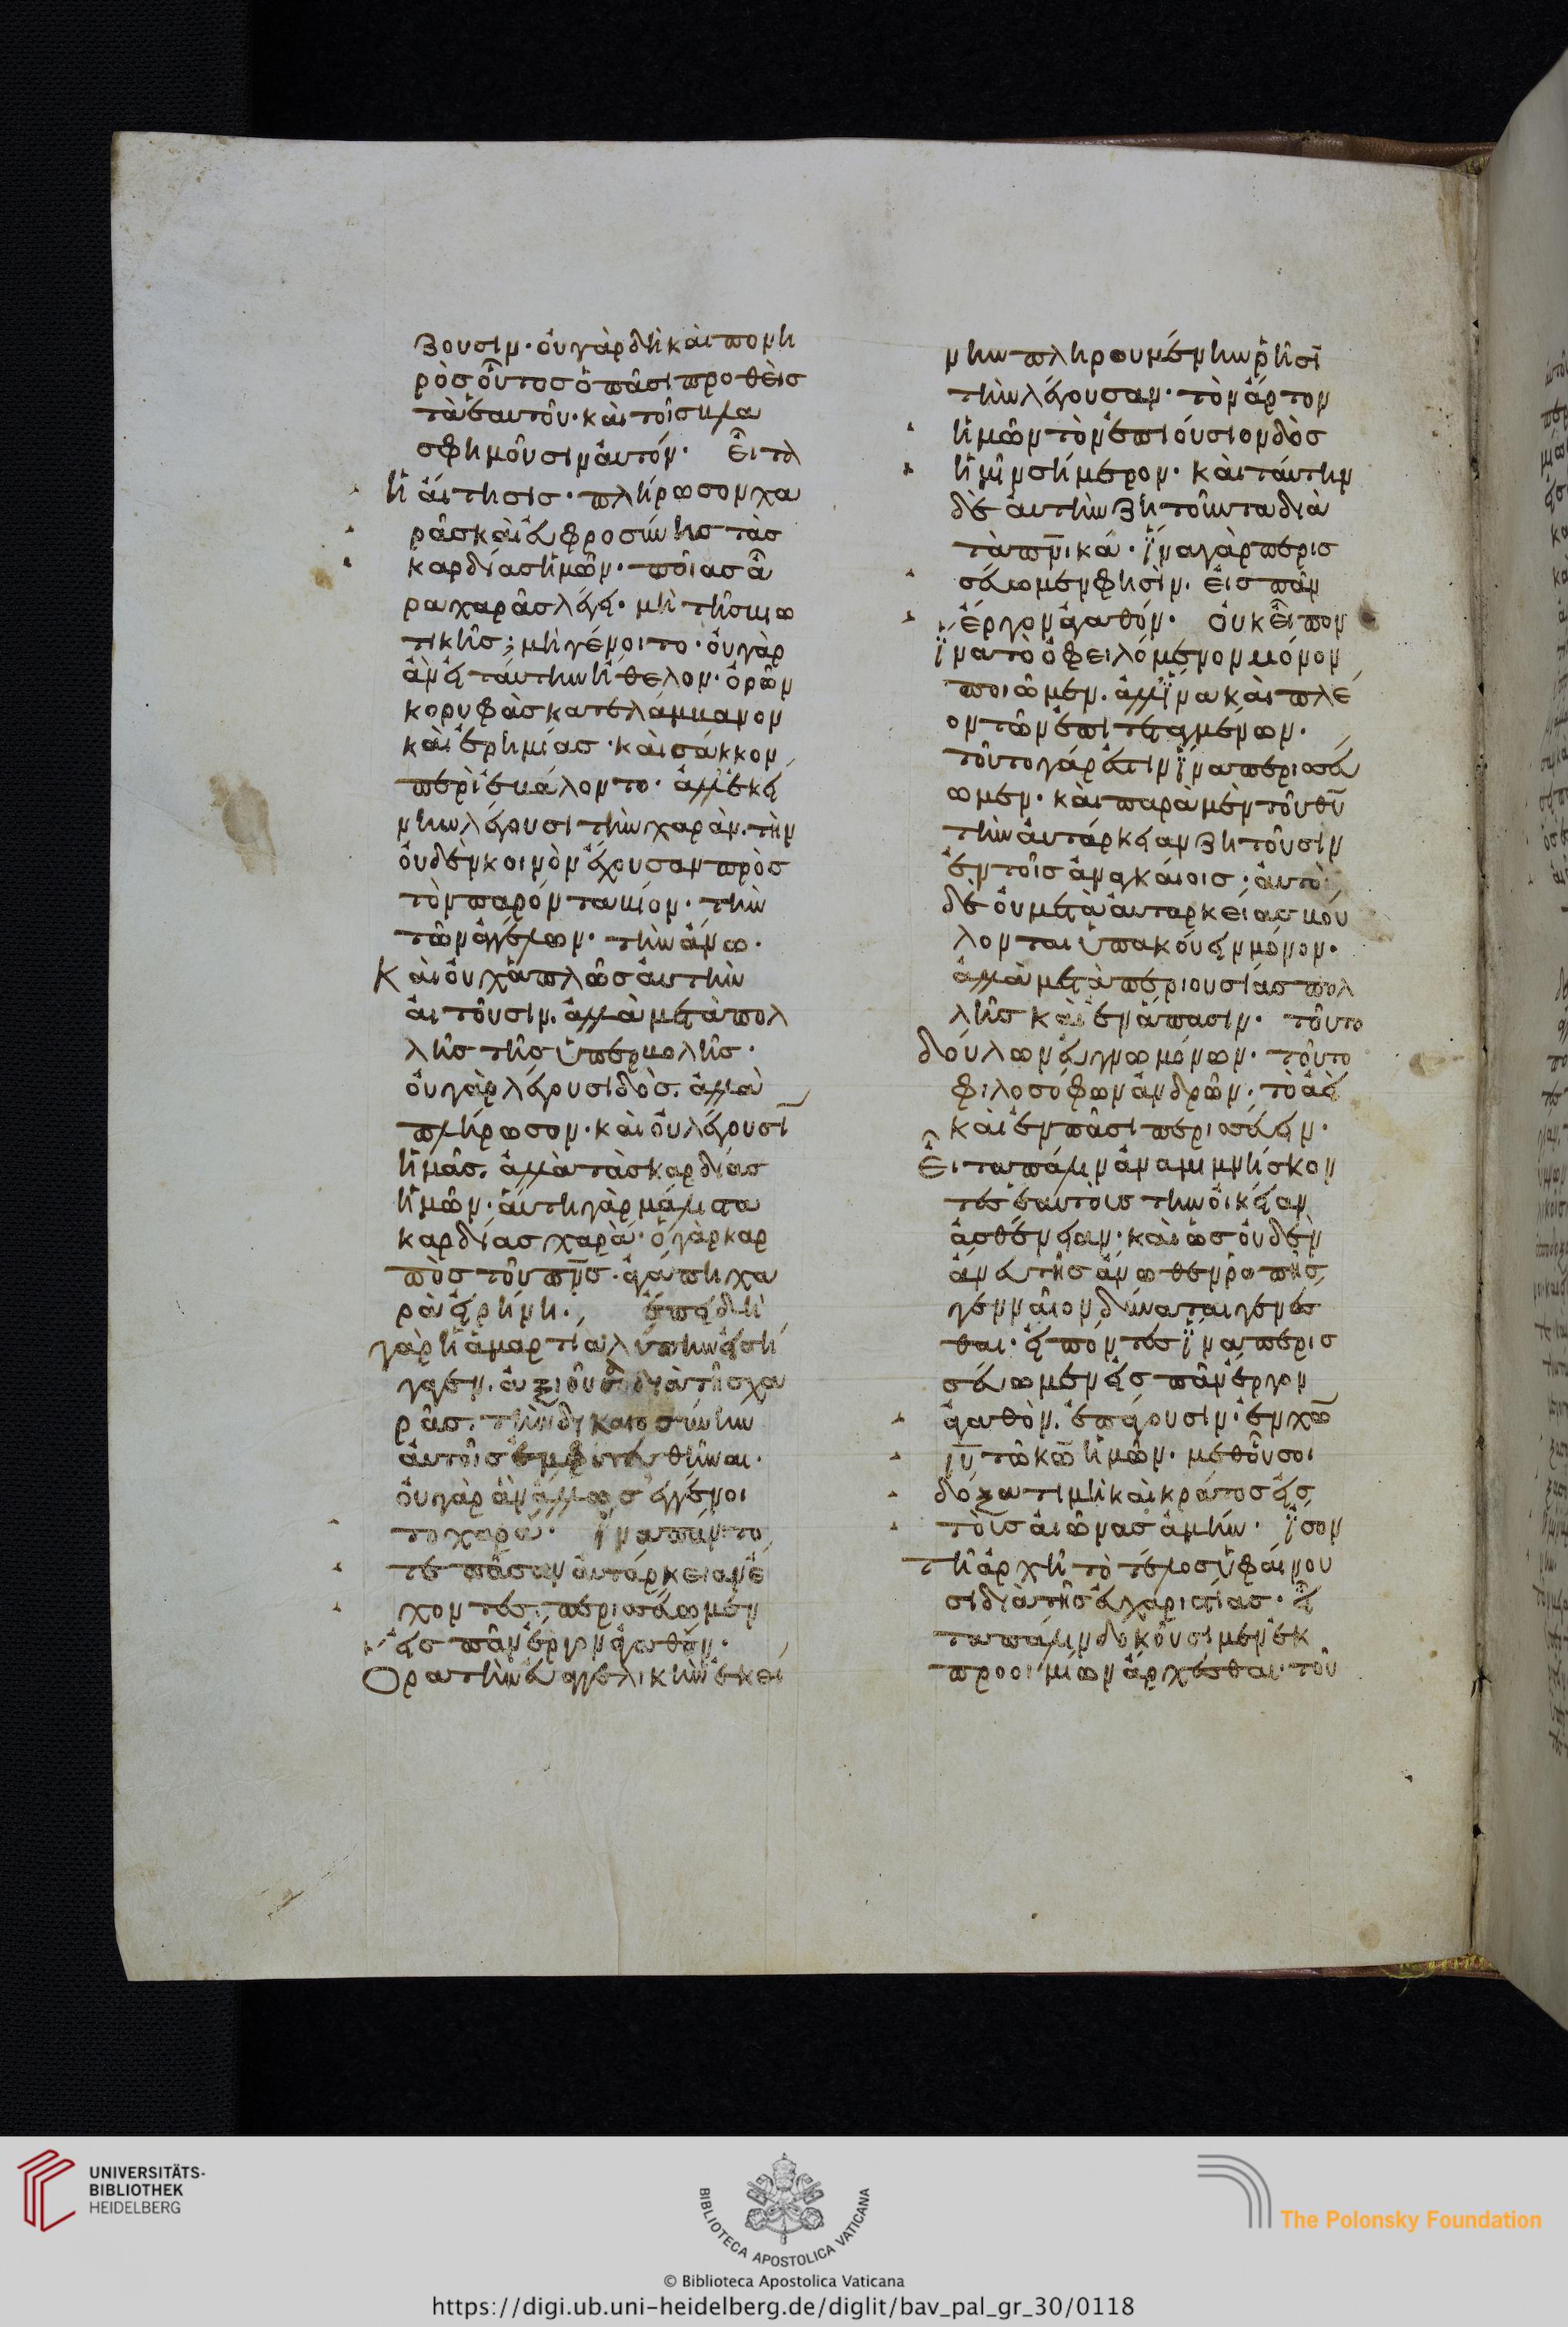 ζουσιν· οὐ γὰρ δὴ καὶ πονη
ρὸς οὗτος ὁ πᾶσι προθεὶς
τὰ ἑαυτοῦ· καὶ τοῖς βλα
σφημοῦσιν αὐτόν· εἶτα
ἡ αἴτησις· πλήρωσον χα
ρᾶς καὶ εὐφροσύνης τὰς
καρδίας ἡμῶν· ποίας ἆ
ρα χαρᾶς λέγει· μὴ τῆς βιω
τικῆς; μὴ γένοιτο· οὐ γὰρ
ἂν εἰ ταύτην ἤθελον· ὀρῶν
κορυφὰς κατελάμβανον
καὶ ἐρημίας· καὶ σάκκον
περιεβάλοντο· ἀλλ' ἐκεί
νην λέγουσι τὴν χαρὰν· τὴν
οὐδὲν κοινὸν ἔχουσαν πρὸς
τὸν παρόντα βίον· τὴν
τῶν ἀγγέλων· τὴν ἄνω·
Καὶ οὐχ ἁπλῶς αὐτὴν
αἰτοῦσιν· ἀλλὰ μετὰ πολ
λῆς τῆς ὑπερβολῆς·
οὐ γὰρ λέγουσι δὸς· ἀλλὰ
πλήρωσον· καὶ οὐ λέγουσῑ
ἡμᾶς· ἀλλὰ τὰς καρδίας
ἡμῶν· αὕτη γὰρ μάλιστα
καρδίας χαρά· ὁ γὰρ καρ
πὸς τοῦ πν̅ς· ἀγάπη χα
ρὰ εἰρήνη· ἐπειδὴ
γὰρ ἡ ἁμαρτία λύπην εἰσή
γαγεν· ἀξιοῦσι διὰ τῆς χα
ρᾶς· τὴν δικαιοσύνην
αὐτοῖς ἐμφυτευθῆναι·
οὐ γὰρ ἂν ἄλλως ἐγένοι
το χαρά· ἵνα πάντο
τε πᾶσαν αὐτάρκειαν ἔ
χοντες· περισσεύωμεν
εἰς πᾶν ἔργον ἀγαθόν·
Ὅρα τὴν εὐαγγελικὴν ἐκεί
νην πληρουμένην ῥῆσῑ
τὴν λέγουσαν· τὸν ἄρτον
ἡμῶν τὸν ἐπιούσιον δὸς
ἡμῖν σήμερον· καὶ ταύτην
δὲ αὐτὴν ζητοῦντα διὰ
τὰ πν̅ικά· ἵνα γὰρ περισ
σεύωμεν φησὶν· εἰς πᾶν
ἔργον ἀγαθόν· οὐκ εἶπον
ἵνα τὸ ὀφειλόμενον μόνον
ποιῶμεν· ἀλλ' ἵνα καὶ πλέ
ον τῶν ἐπιτεταγμένων·
τοῦτο γάρ ἐστιν ἵνα περισσεύ
ωμεν· καὶ παρὰ μὲν τοῦ θυ̅
τὴν αὐτάρκειαν ζητοῦσιν
ἐν τοῖς ἀναγκαίοις· αὐτοὶ
δὲ οὐ μετὰ αὐταρκείας βού
λονται ὑπακούειν μόνον·
ἀλλὰ μετὰ περιουσίας πολ
λῆς καὶ ἐν ἅπασιν· τοῦτο
δούλων εὐγνωμόνων· τοῦτο
φιλοσόφων ἀνδρῶν· τὸ ἀεὶ
καὶ ἐν πᾶσι περισσεύειν·
Εἶτα πάλιν ἀναμιμνήσκον
τες ἑαυτοὺς τὴν οἰκείαν
ἀσθένειαν· καὶ ὡς οὐδὲν
ἄνευ τῆς ἄνωθεν ῥοπῆς
γενναῖον δύναται γενέσ
θαι· εἰπόντες ἵνα περισ
σεύωμεν εἰς πᾶν ἔργον
ἀγαθὸν· ἐπάγουσιν· ἐν χω̅
ιυ̅ τῶ κω̅ ἡμῶν· μεθ' οὗ σοι
δόξα τιμὴ καὶ κράτος εἰς
τοὺς αἰῶνας ἀμήν· ἴσον
τῆ ἀρχῆ τὸ τέλος ὑφαίνου
σι διὰ τῆς εὐχαριστίας· εἶ
τα πάλιν δοκοῦσι μὲν ἐκ
προοιμίων ἄρχεσθαι· τοῦ
UNIVERSITÄTS-
BIBLIOTHEK
HEIDELBERG
BIBLIOTECA APOSTOLICA VATICANA
The Polonsky Foundation
© Biblioteca Apostolica Vaticana
https://digi.ub.uni-heidelberg.de/diglit/bav_pal_gr_30/0118